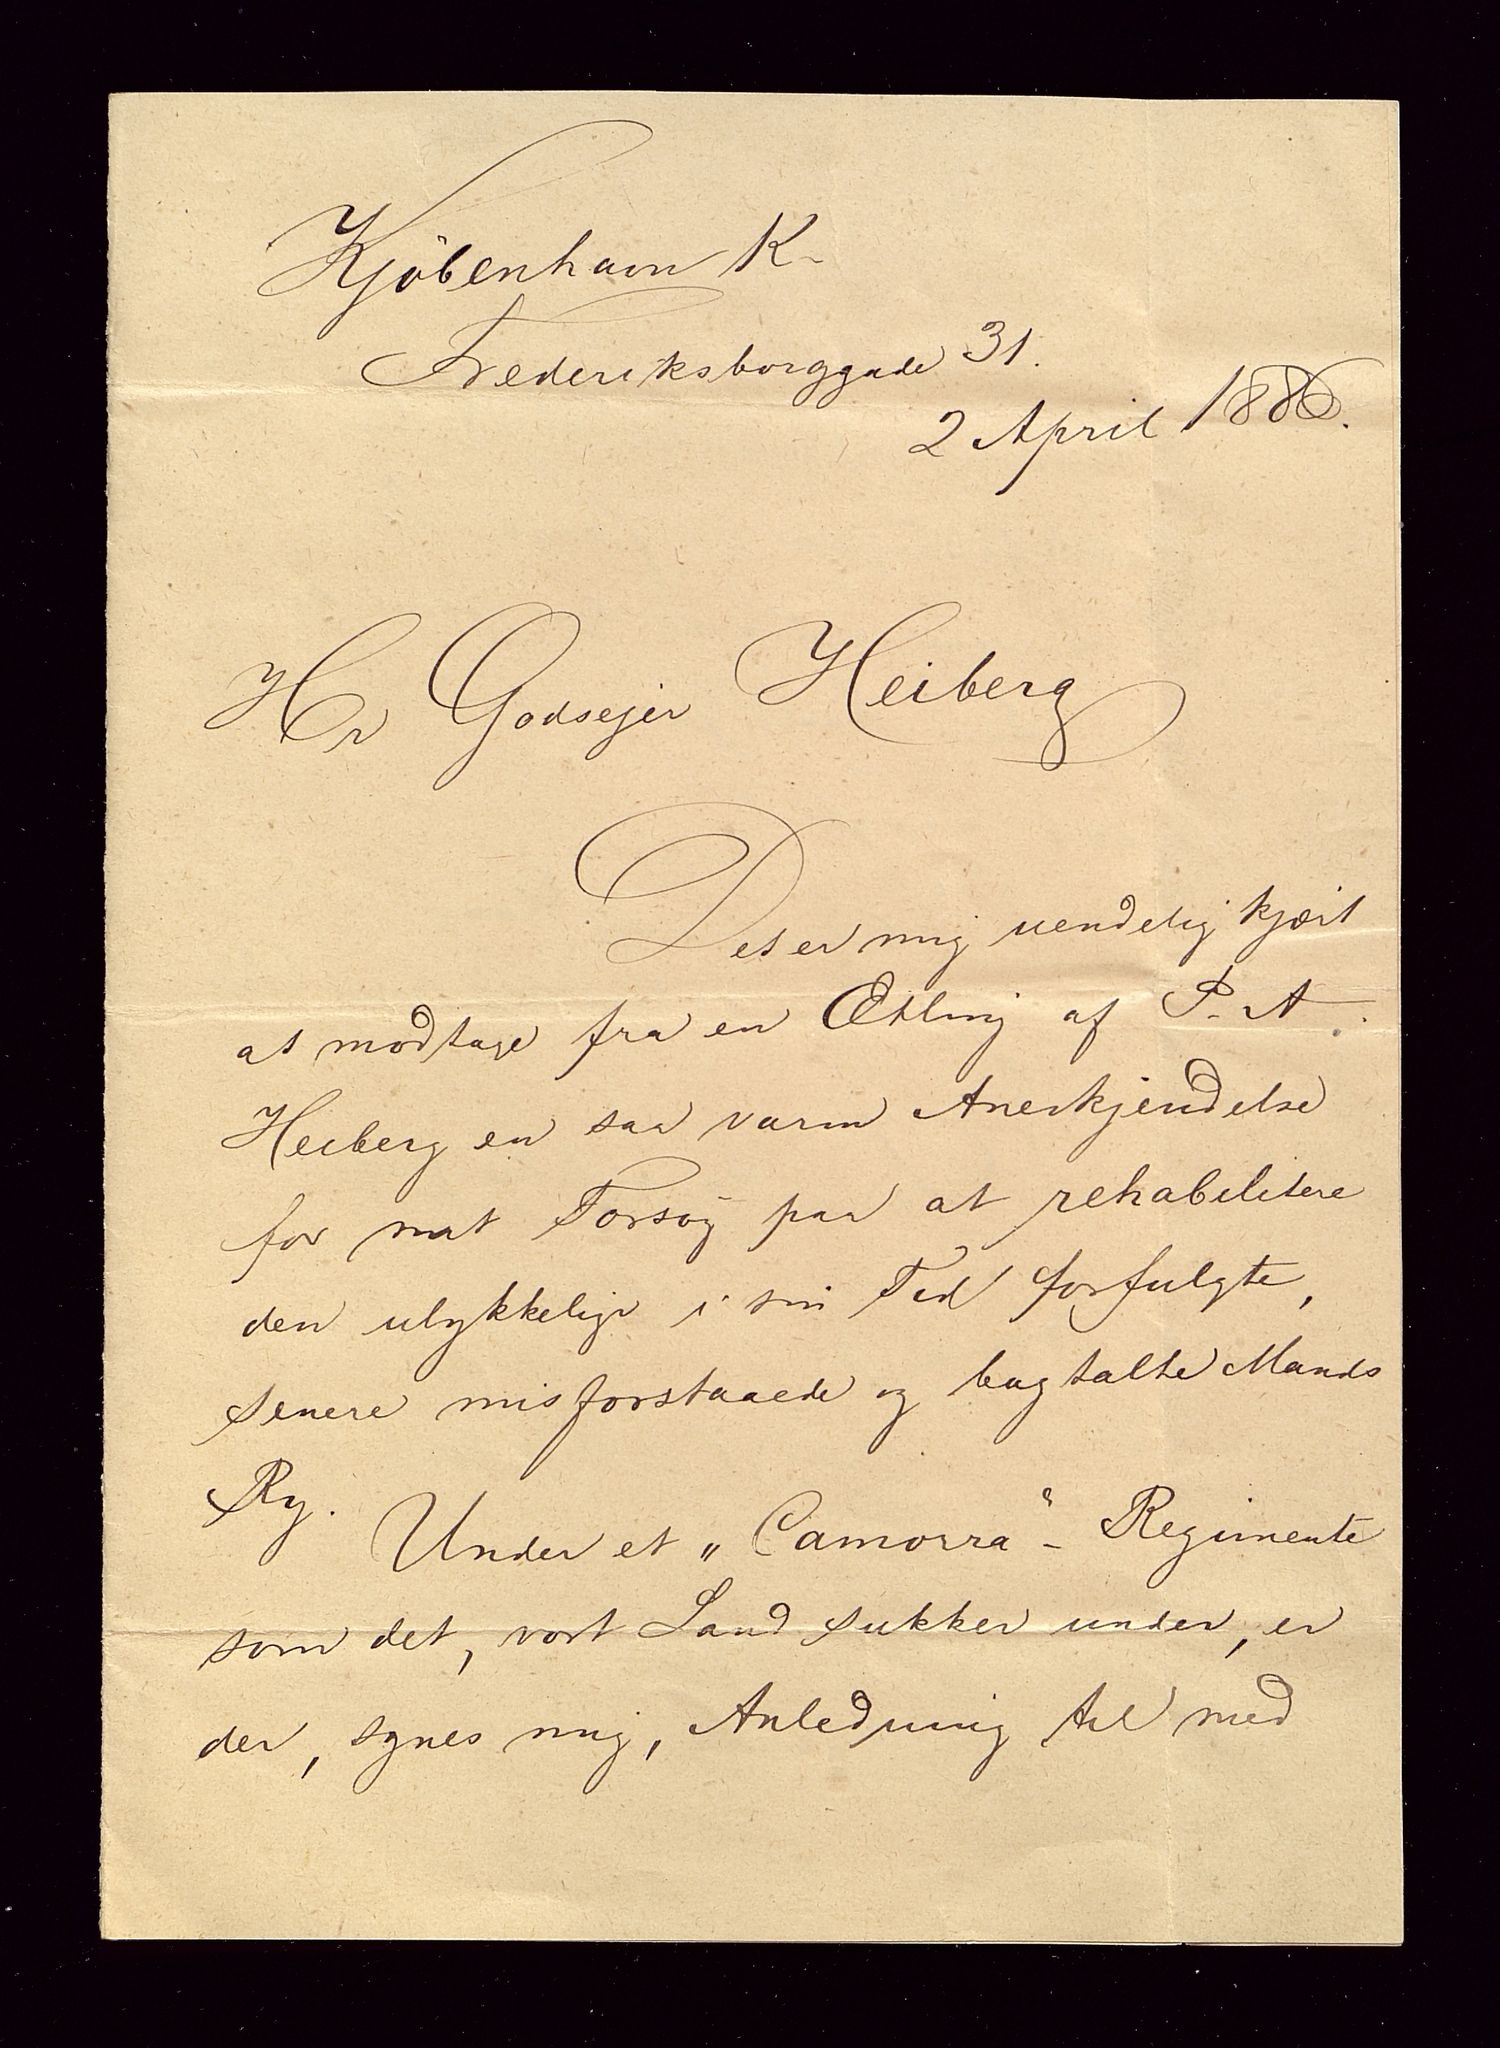 Kjöbenhavn K.
Frederiksborggade 31.
2 April 1886.
Hr Godsejer Heiberg
Det er mig uendelig kjært
at modtage fra en Ætling af P. A.
Heiberg en saa varm Anerkjendelse
for mit Forsøg paa at rehabilitere
den ulykkelige i sin Tid forfulgte,
senere misforstaaede og bagtalte Mands
Ry.
Under et „Camorra“-Regimente
som det, vort Land sukker under, er
der, synes mig, Anledning til med